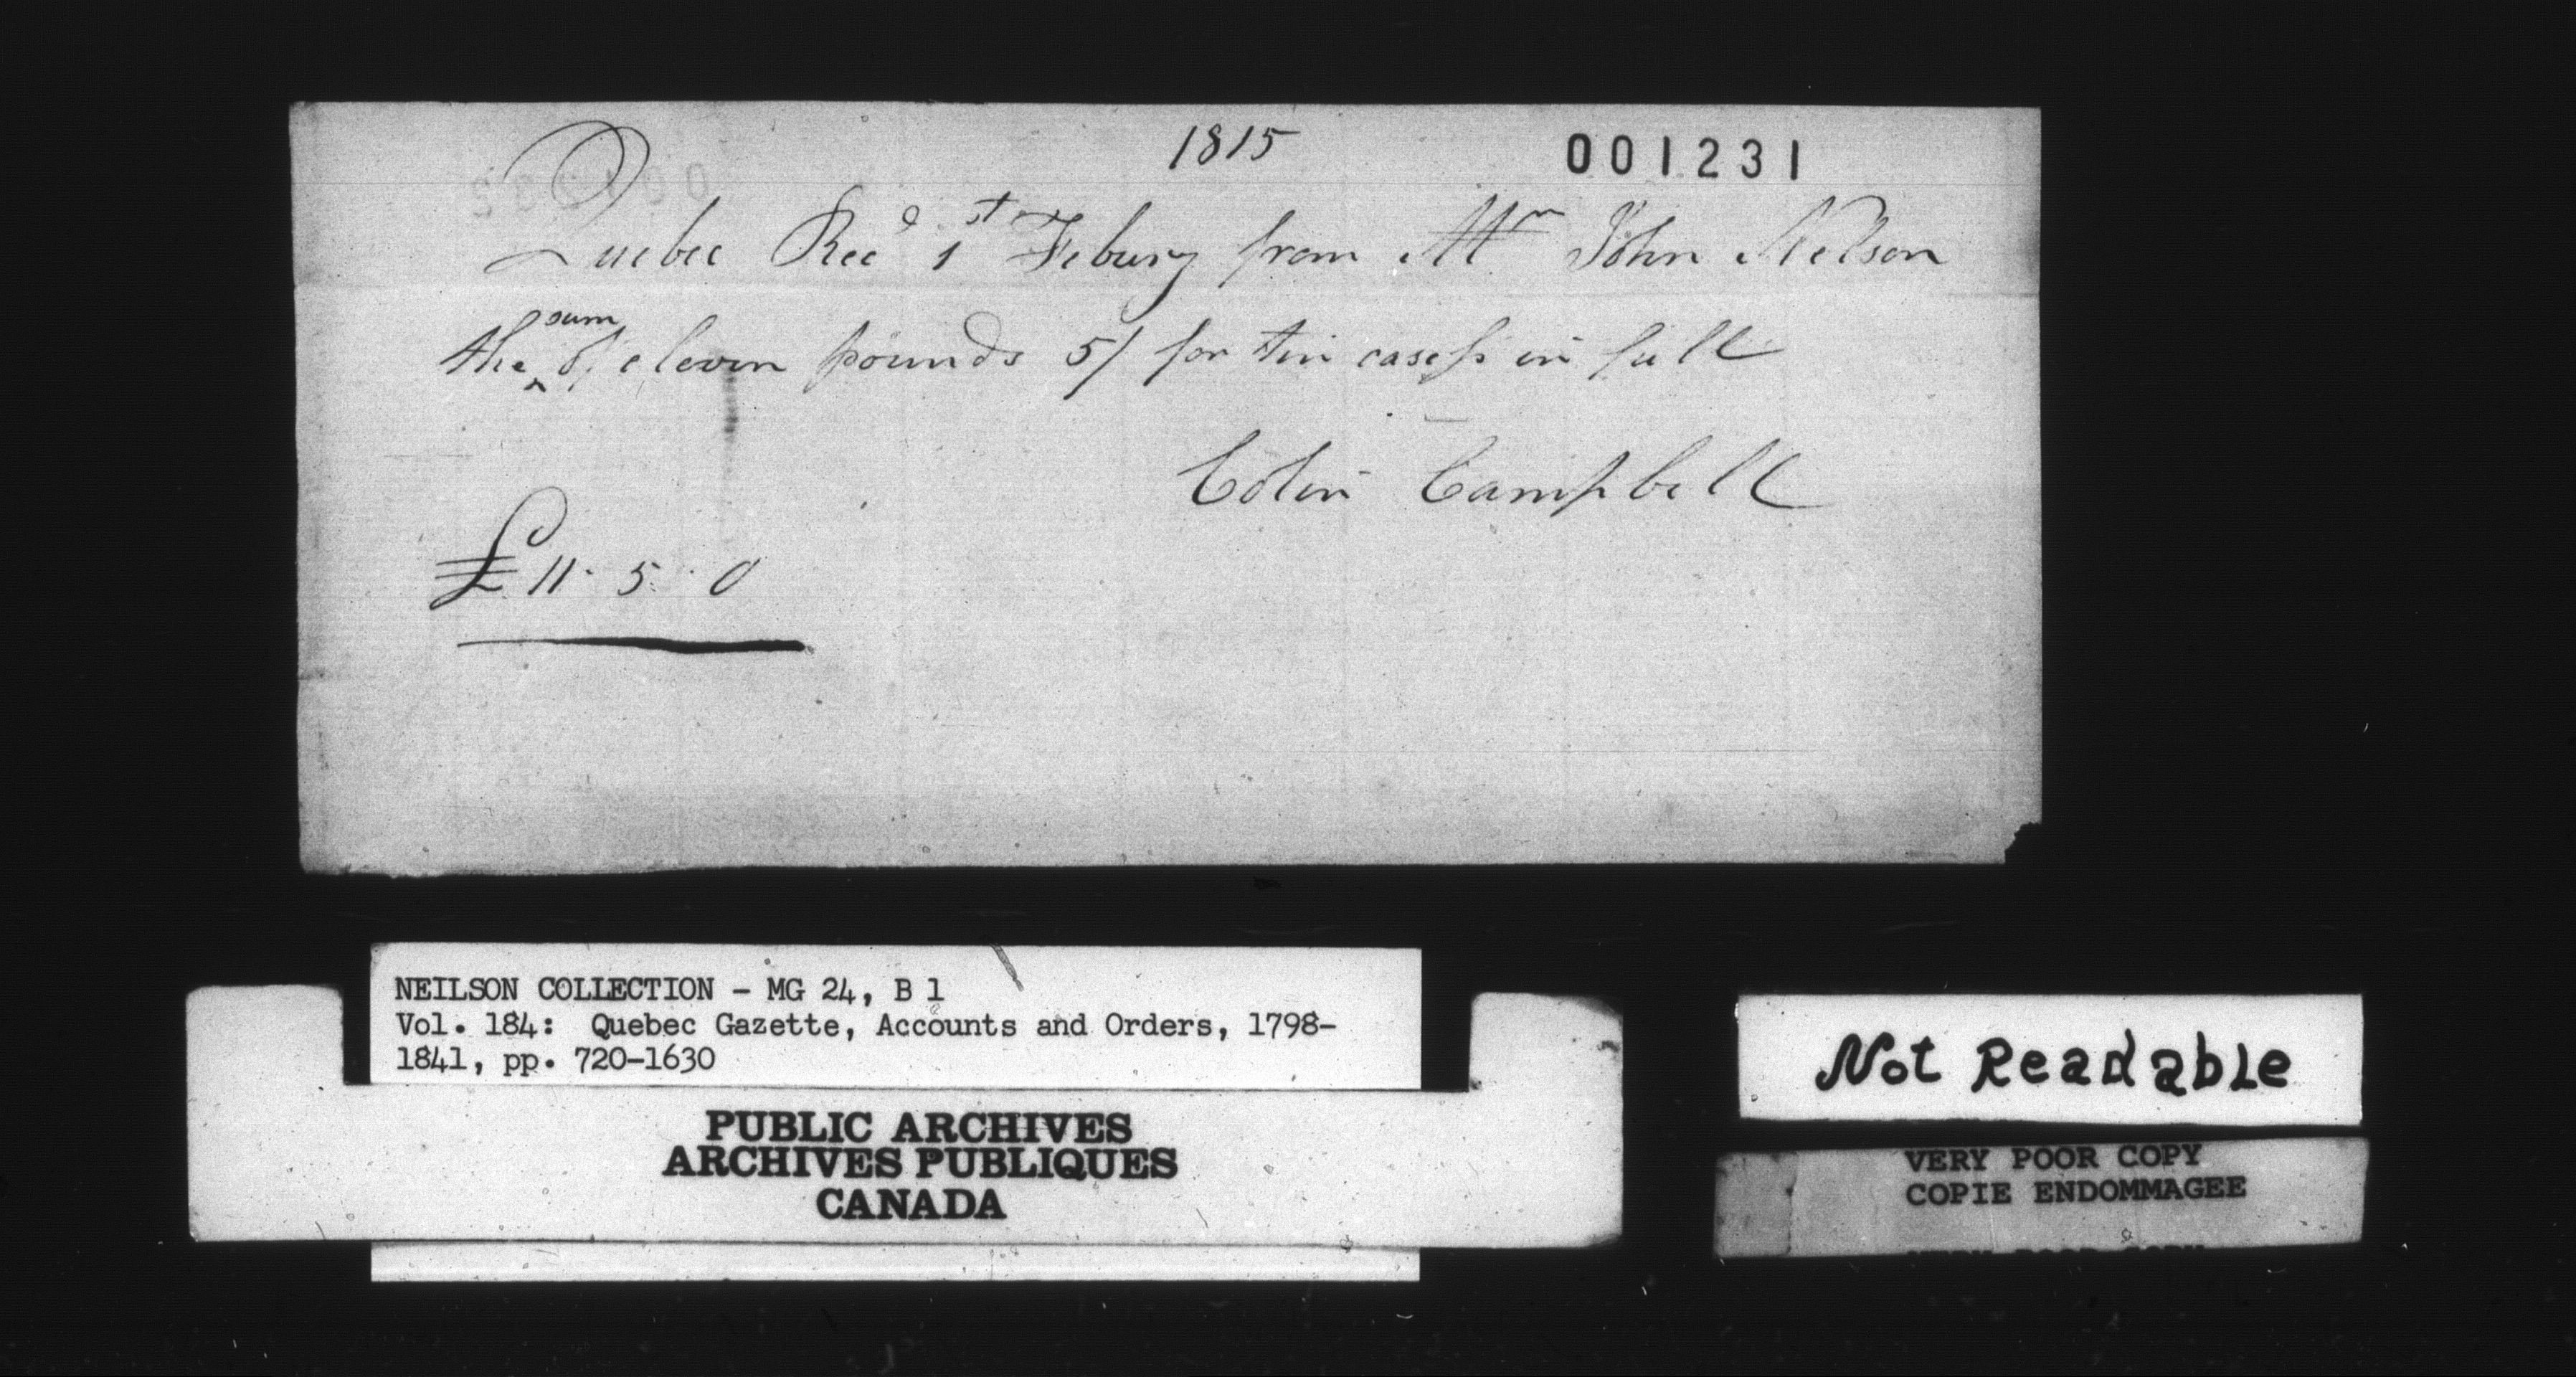 1815
001231
Quebec Recd 1st Febury from Mr John Nelson
the sum of eleven pounds 5/ for tin casess in full
Colin Campbell
£11·5·0
NEILSON COLLECTION - MG 24, B 1
Vol. 184: Quebec Gazette, Accounts and Orders, 1798-
1841, pp. 720-1630
PUBLIC ARCHIVES
ARCHIVES PUBLIQUES
CANADA
Not Readable
VERY POOR COPY
COPIE ENDOMMAGEE